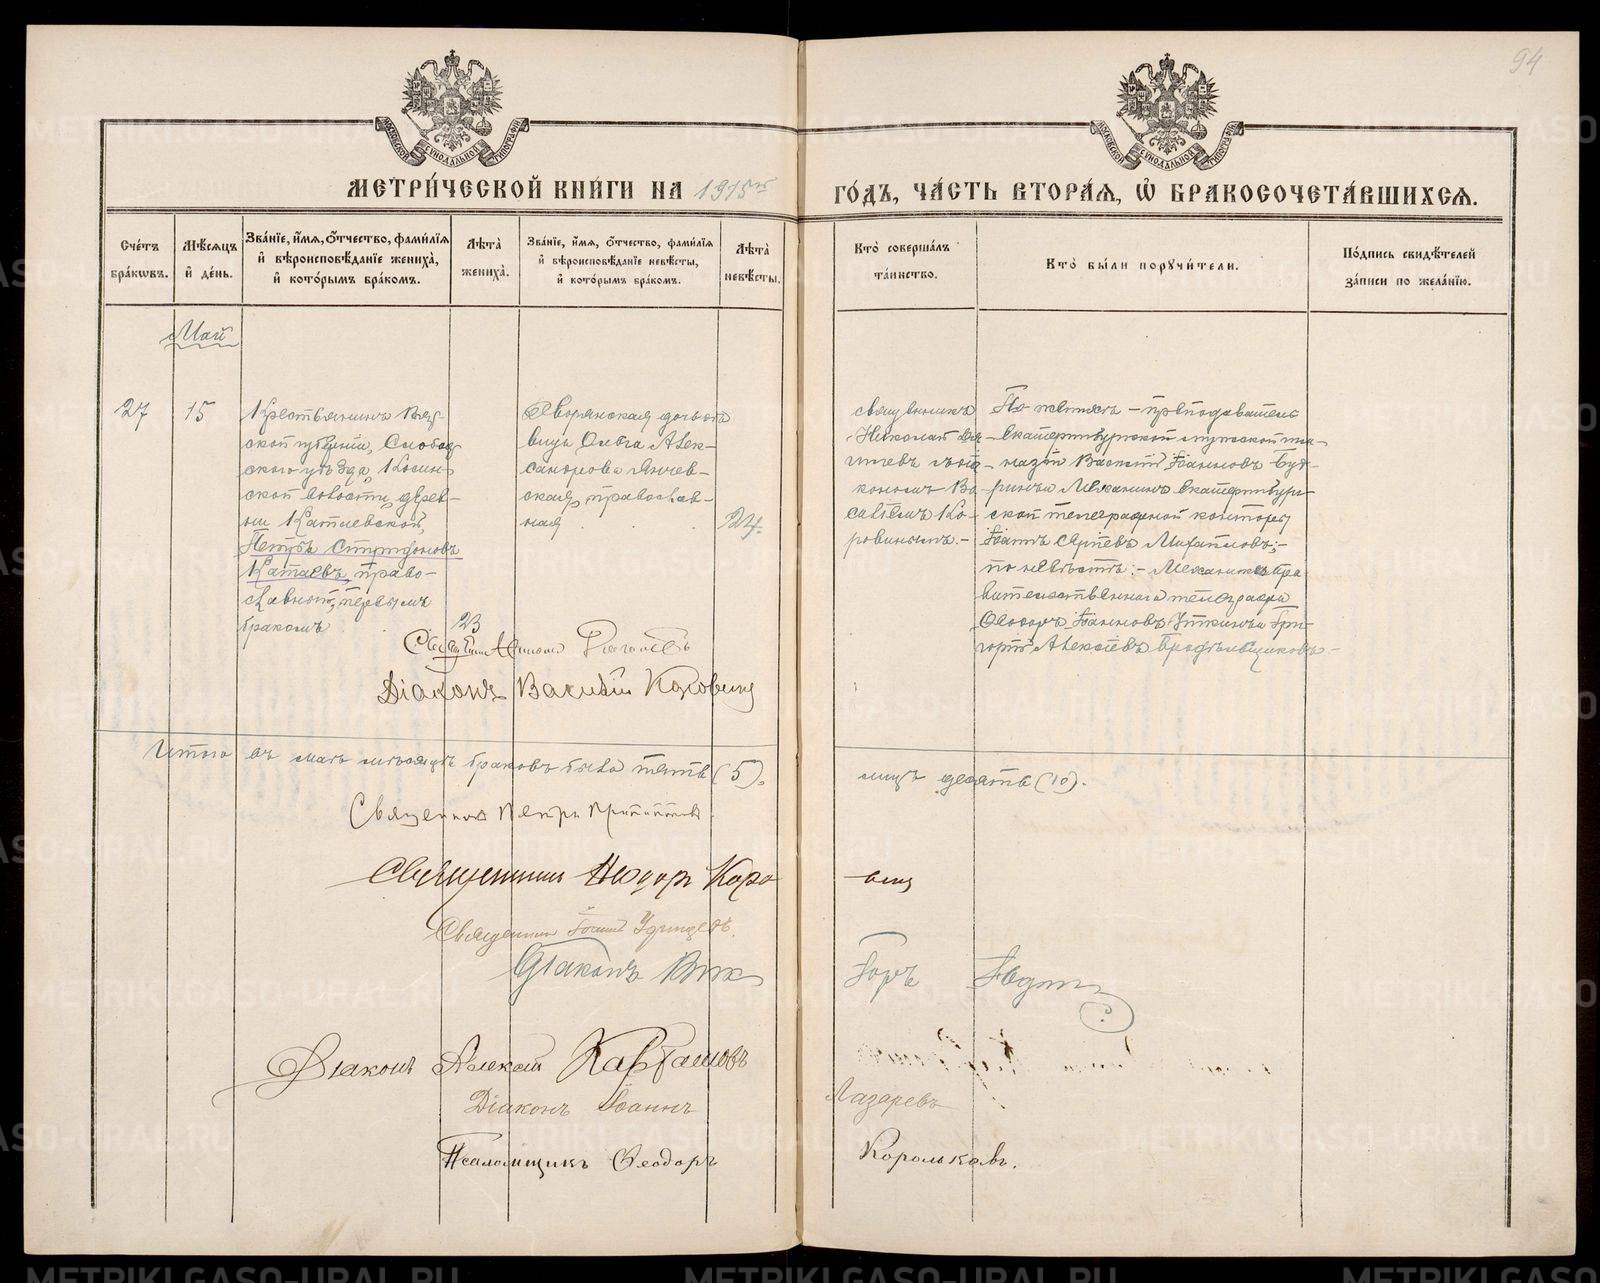 94
МОСКОВСКОЙ СѴНОДАЛЬНОЙ ТИПОГРАФІИ
МОСКОВСКОЙ СѴНОДАЛЬНОЙ ТИПОГРАФІИ
МЕТРИ́ЧЕСКОЙ КНИ́ГИ НА 1915й
ГО́ДЪ, ЧА́СТЬ ВТОРА́Я, Ѡ҆ БРАКОСОЧЕТА́ВШИХСЯ.
Сче́тъ бра́кѡвъ.
Мѣ́сяцъ и҆ де́нь.
Зва́нїе, и҆́мя, ѻ҆́тчество, фами́лїя
и҆ вѣроисповѣ́данїе жениха̀,
и҆ кото́рымъ бра́комъ.
Лѣта̀ жениха̀.
Зва́нїе, и҆́мя, ѻ҆́тчество, фами́лїя
и҆ вѣроисповѣ́данїе невѣ́сты,
и҆ кото́рымъ бра́комъ.
Лѣта̀ невѣ́сты.
Кто̀ соверша́лъ та́инство.
Кто̀ бы́ли порꙋчи́тели.
По́дпись свидѣ́телей за́писи по жела́нїю.
Май
27
15
Крестьянинъ Вят-
ской губерніи, Слобод-
ского уѣзда, Косин-
ской волости, дерев-
ни Катаевской,
Петръ Спиридоновъ
Катаевъ, право-
славный, первымъ
бракомъ
23
Дворянская дочь дѣ-
вица Ольга Алек-
сандрова Янчев-
ская, православ-
ная
24.
священникъ
Николай
діа-
кономъ Ва-
силіемъ Ко-
ровинымъ.-
По женихѣ - преподаватель
Екатеринбургской мужской гим-
назіи Василій Іанновъ
Механикъ Екатеринбург-
ской телеграфной конторы
Іаннъ Михаиловъ;-
по невѣстѣ:- Механикъ Пра-
вительственнаго телеграфа
Ѳеодоръ Іанновъ Уткинъ и Гри-
горій Алексіевъ Брофельщиковъ-
Діаконъ Василій Коровинъ
Итого въ маѣ мѣсяцѣ браковъ было пять (5).
лицъ десять (10).
Священникъ Петръ
Священникъ Ѳеодоръ Коро
винъ
Священникъ Іоаннъ Удинцевъ.
Діаконъ Вик
торъ
Діаконъ Алексій Карташовъ
Діаконъ Іоаннъ
Лазаревъ
Псаломщикъ Ѳеодоръ
Корольковъ.
METRIKI.GASO-URAL.RU